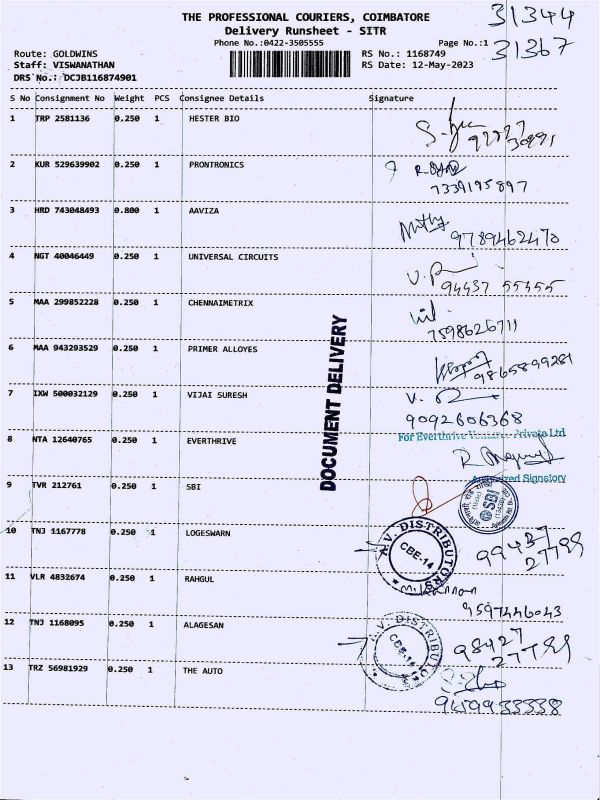 THE PROFESSIONAL COURIERS, COIMBATORE
31344
Delivery Runsheet - SITR
Phone No.:0422-3505555
Page No.:1
31367
Route: GOLDWINS
RS No.: 1168749
Staff: VISWANATHAN
RS Date: 12-May-2023
DRS No.: DCJB116874901
S No Consignment No Weight PCS Consignee Details Signature
1 TRP 2581136 0.250 1 HESTER BIO
2 KUR 529639902 0.250 1 PRONTRONICS
7339195897
3 HRD 743048493 0.800 1 AAVIZA
9789462470
4 NGT 40046449 0.250 1 UNIVERSAL CIRCUITS
94437 55455
5 MAA 299852228 0.250 1 CHENNAIMETRIX
7598626711
DOCUMENT DELIVERY
6 MAA 943293529 0.250 1 PRIMER ALLOYES
9865899281
7 IXW 500032129 0.250 1 VIJAI SURESH
9092606368
For Everthrive Private Ltd
8 NTA 12640765 0.250 1 EVERTHRIVE
Authorized Signatory
9 TVR 212761 0.250 1 SBI
SBI
10 TNJ 1167778 0.250 1 LOGESWARN
A.V. DISTRIBUTORS
CBE-14
99437
27799
11 VLR 4832674 0.250 1 RAHGUL
9597446043
12 TNJ 1168095 0.250 1 ALAGESAN
A.V. DISTRIBUTORS
CBE-14
98427
27799
13 TRZ 56981929 0.250 1 THE AUTO